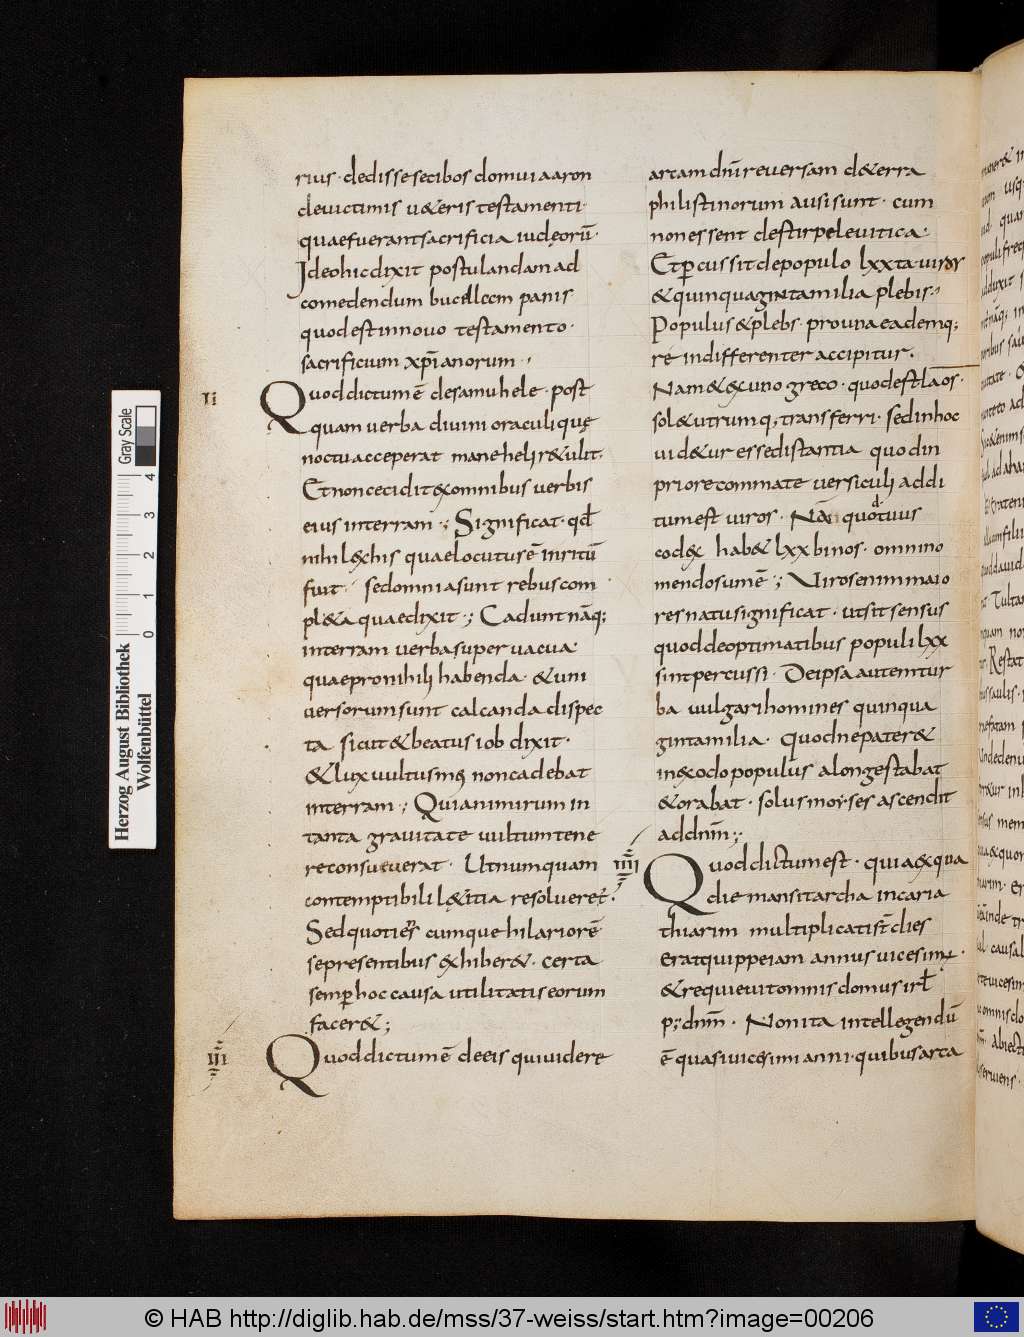 rius · dedisse se cibos domui aaron
de victimis v&eris testamenti ·
quae fuerant sacrificia iudęorū ·
Ideo hic dixit postulandam ad
comedendum bucellam panis
quod est in novo testamento ·
sacrificium xp̄ianorum ·,
II
Quod dictum ē de samuhele · post
quam verba divini oraculi quę
noctu acceperat mane heli r&ulit ·
Et non cecidit &x omnibus verbis
eius in terram ·; Significat · qđ
nihil &x his quae locutus ē inritū
fuit · sed omnia sunt rebus com
pl&a quae dixit ·; Cadunt nāq;
in terram verba supervacua
quae pro nihili habenda · & uni
versorum sunt calcanda dispec
ta sicut & beatus iob dixit ·
& lux vultus mei non cadebat
in terram ·; Quia nimirum in
tanta gravitate vultum tene
re consueverat · Ut numquam
contemptibili l&itia resolver& ·
Sed quotiens cumque hilariorē
se presentibus &xhiber& · certa
semp hoc causa utilitatis eorum
facer& ;
III
Quod dictum ē de eis qui videre
arcam dn̄i reversam de terra
philistinorum ausi sunt · cum
non essent de stirpe levitica ·
Et pcussit de populo lxxta viros
& quinquaginta milia plebis ·,
Populus & plebs · pro una eademq;
re indifferenter accipitur ·
Nam & &x uno greco · quod est λαος ·
sol& utrumq; transferri · sed in hoc
vid&ur esse distantia quod in
priore commate versiculi addi
tum est viros · Nam quod tuus
cod&x hab& lxx binos · omnino
mendosum ē ·; Viros enim maio
res natu significat · ut sit sensus
quod de optimatibus populi lxx
sint percussi · De ipsa autem tur
ba vulgari homines quinqua
ginta milia · quod nepater&
in &xodo populus a longe stabat
& orabat · solus moyses ascendit
ad dn̄m ·;
IIII
Quod dictum est · quia &x qua
die mansit archa in caria
thiarim multiplicati st̄ dies
erat quippe iam annus vicesimus ·
& requievit omnis domus isrł
p; dn̄m · Non ita intellegendū
ē quasi vicesimi anni · quibus arca
Herzog August Bibliothek
Wolfenbüttel
Gray Scale
0 1 2 3 4
© HAB http://diglib.hab.de/mss/37-weiss/start.htm?image=00206